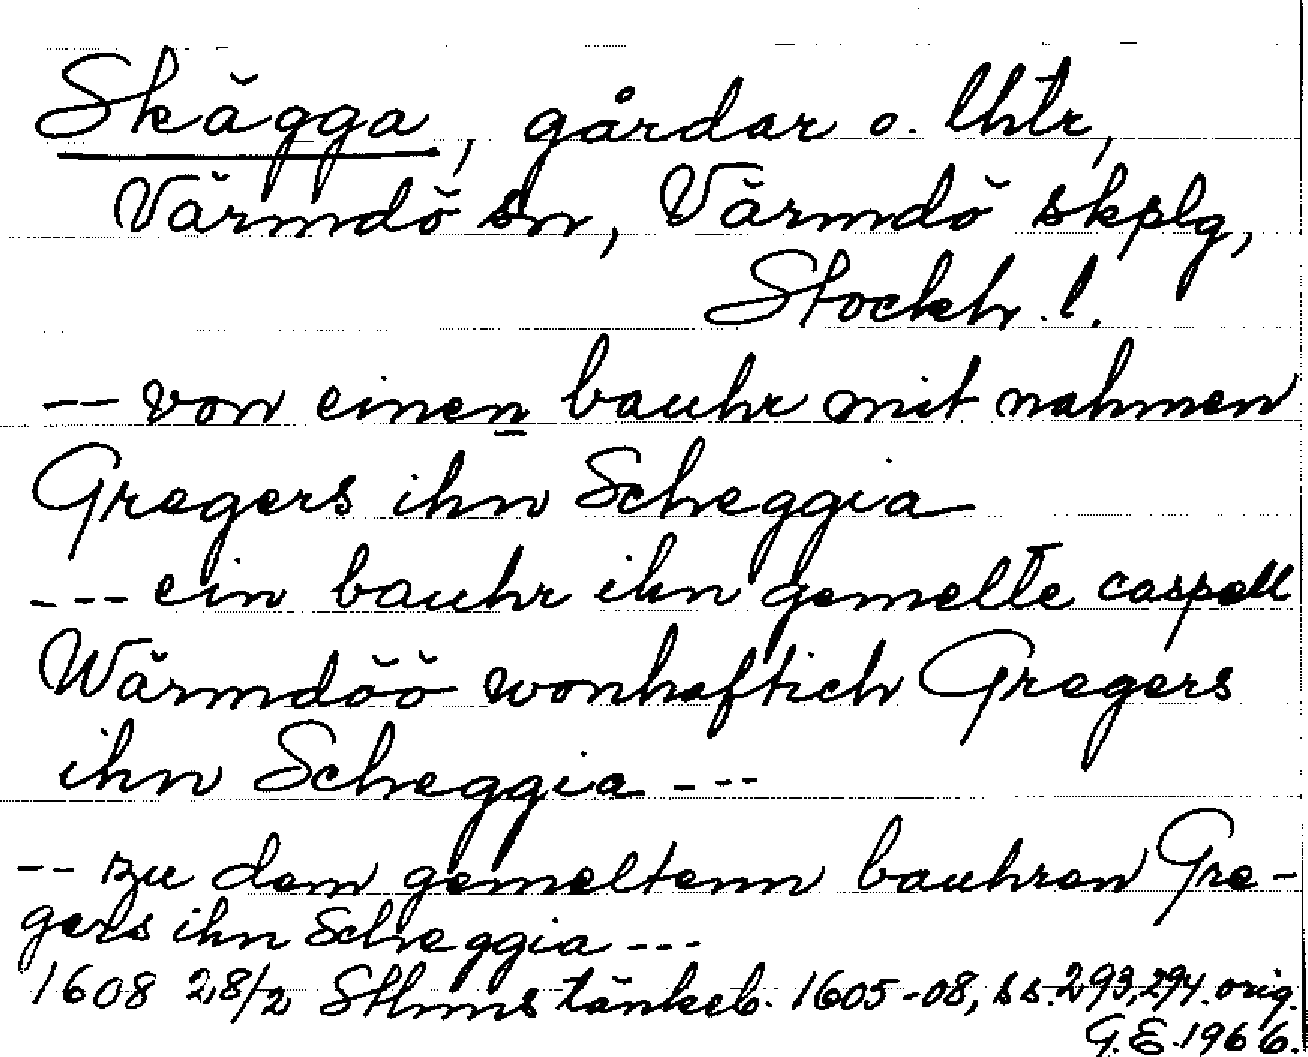 Skägga, gårdar o. lhtr,
Värmdö sn, Värmdö skplg,
Stockh. l.
-- von einen bauhr mit nahmen
Gregers ihn Scheggia
--- ein bauhr ihn gemelte caspell
Wärmdöö wonhaftich Gregers
ihn Scheggia ---
-- zu dem gemeltenn bauhren Gre-
gers ihn Scheggia ---
1608 28/2 Sthms tänkeb. 1605-08, ss. 293, 294. orig.
G.E. 1966.